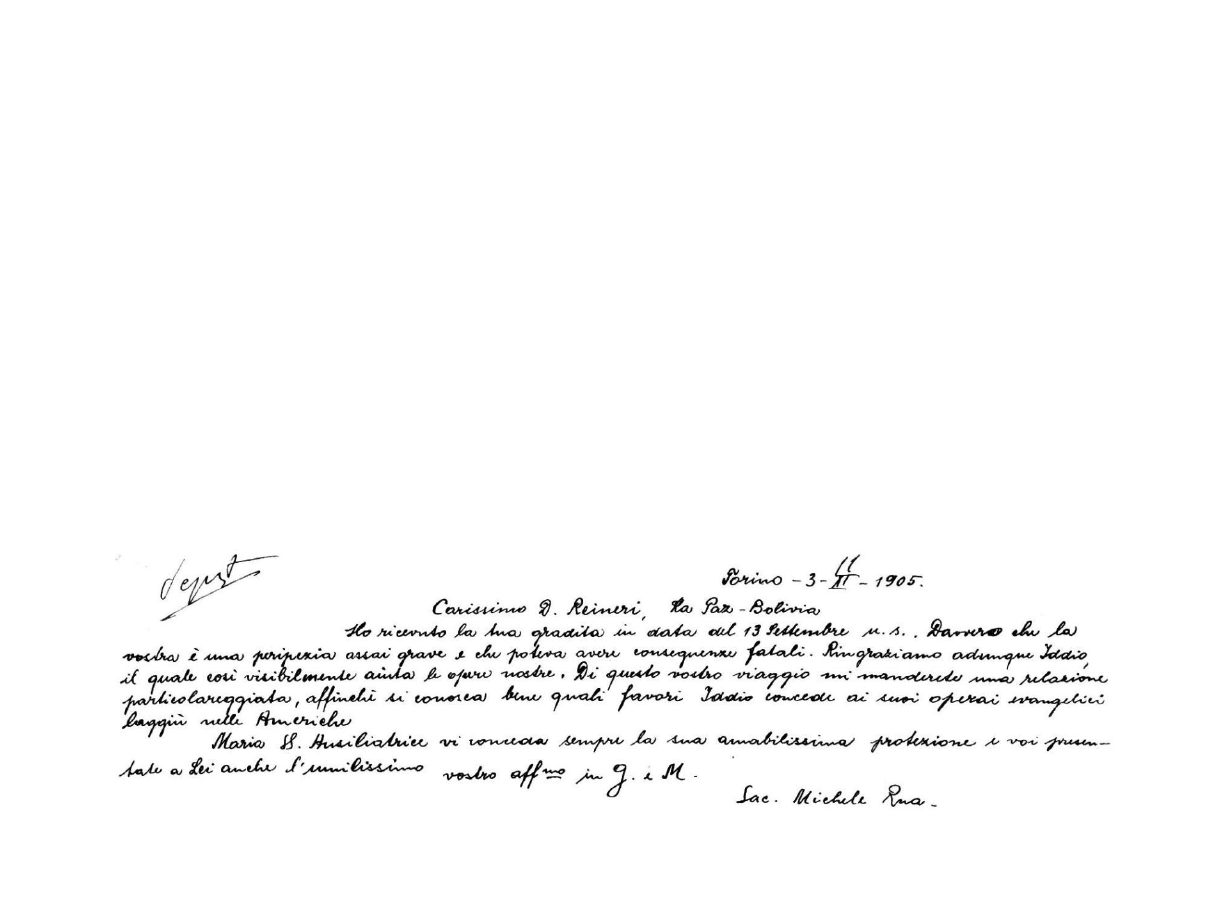 Torino - 3 - 11 - 1905.
Carissimo D. Reineri, La Paz - Bolivia
Ho ricevuto la tua gradita in data del 13 Settembre u. s.. Davvero che la
vostra è una peripezia assai grave e che poteva avere conseguenze fatali. Ringraziamo adunque Iddio,
il quale così visibilmente aiuta le opere nostre. Di questo vostro viaggio mi manderete una relazione
particolareggiata, affinchè si conosca bene quali favori Iddio concede ai suoi operai evangelici
laggiù nelle Americhe
Maria SS. Ausiliatrice vi conceda sempre la sua amabilissima protezione e voi presen-
tate a Lei anche l'umilissimo vostro aff.mo in G. e M.
Sac. Michele Rua -